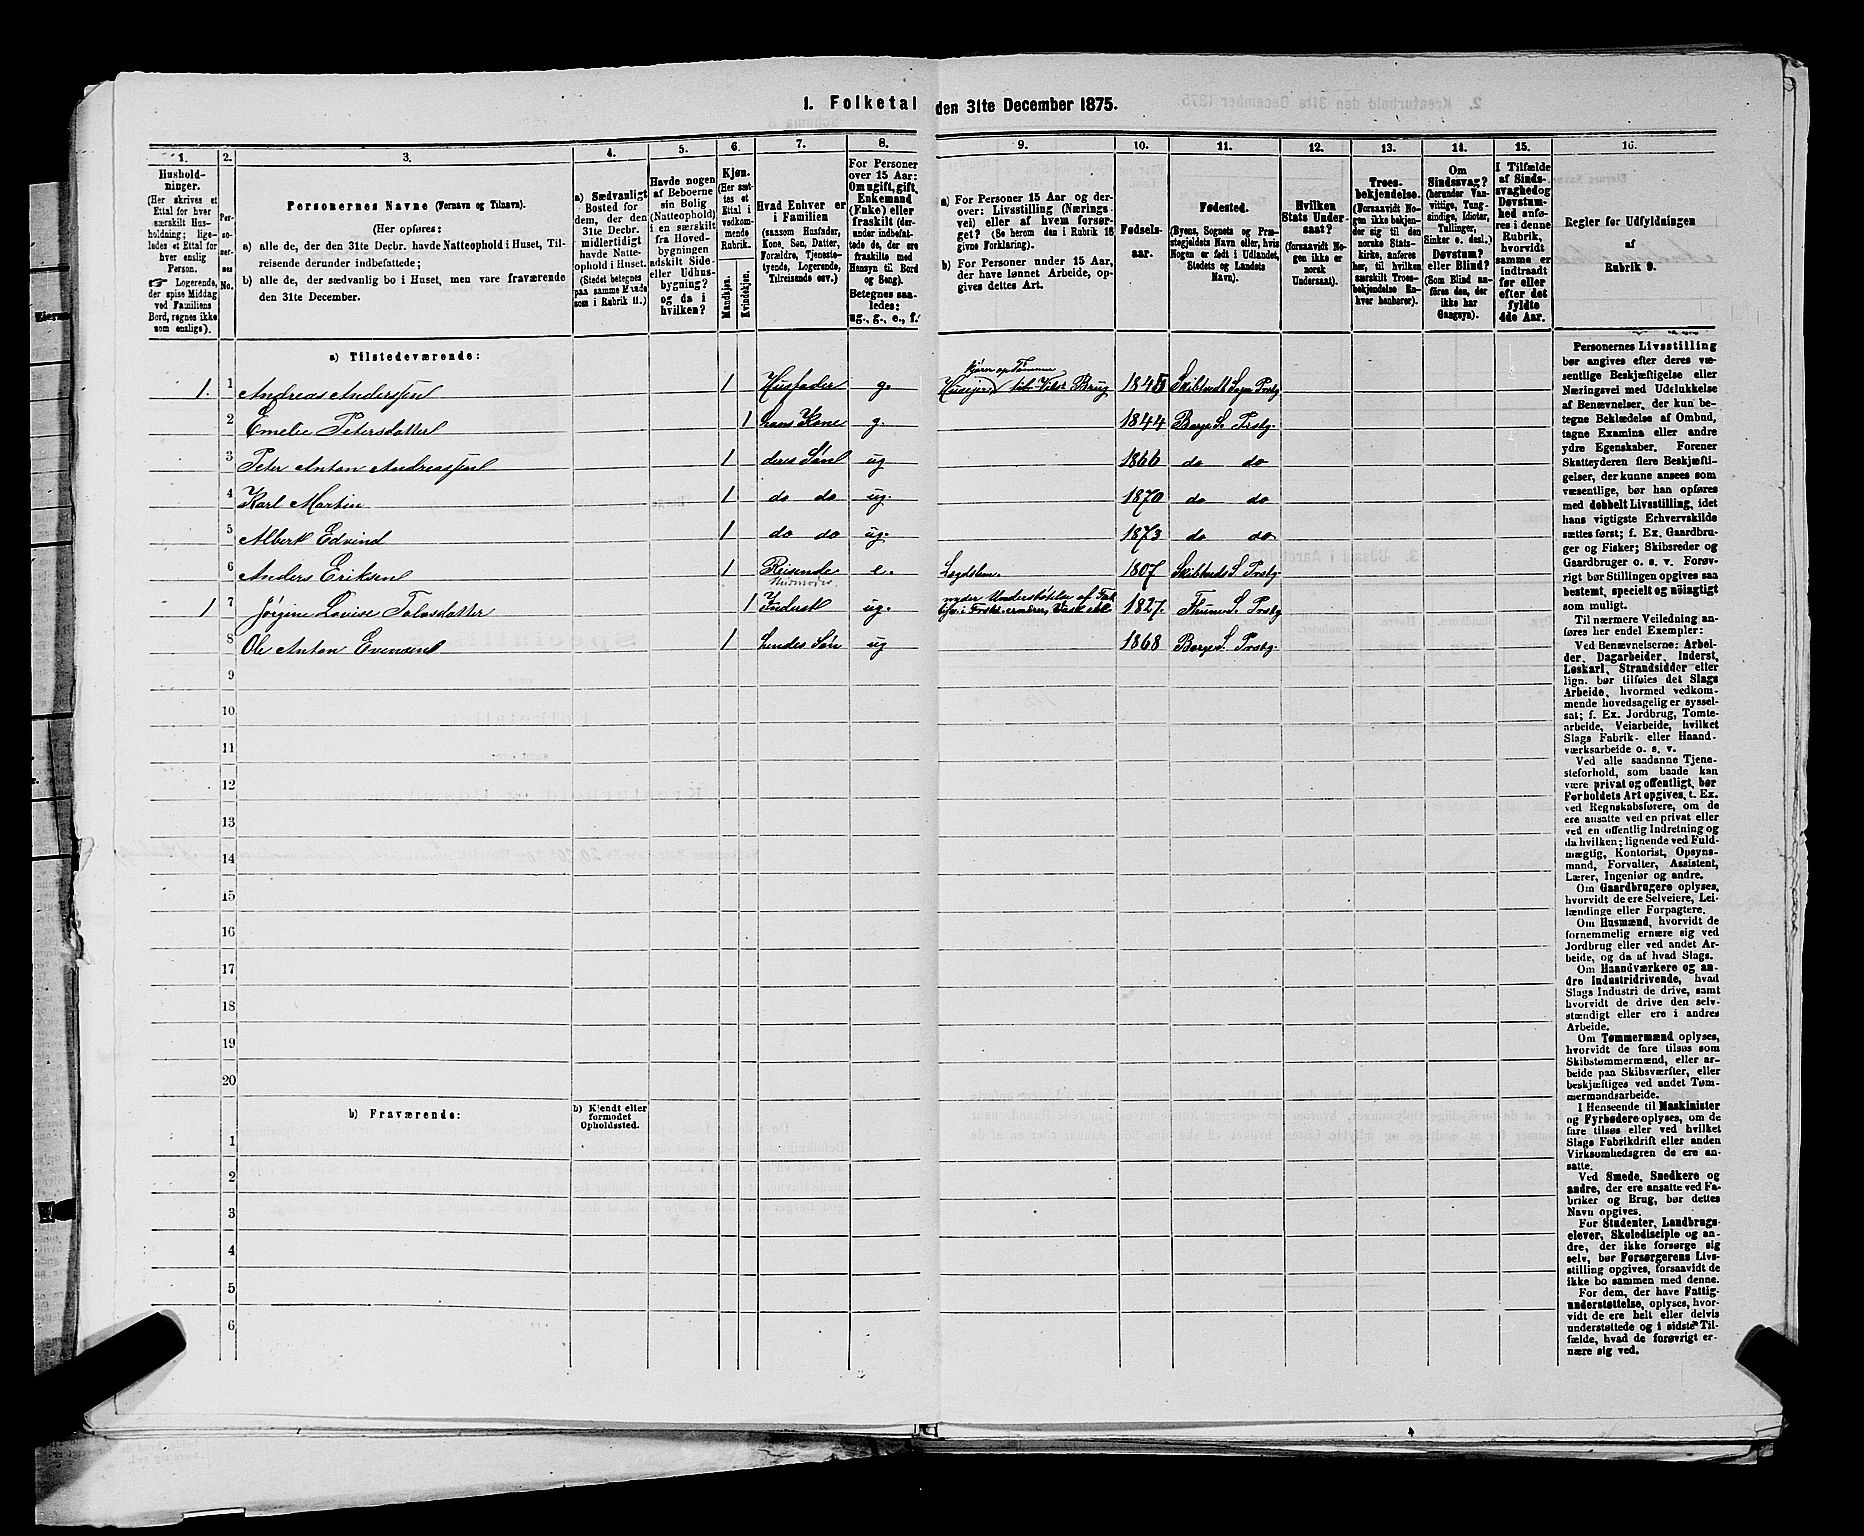 1. Folketal den 31te December 1875.
1.
2.
3.
4.
5.
6.
7.
8.
9.
10.
11.
12.
13.
14.
15.
16.
Hushold-
ninger.
(Her skrives et
Ettal for hver
særskilt Hus-
holdning; lige-
ledes et Ettal for
hver enslig
Person.
☞ Logerende,
der spise Middag
ved Familiens
Bord, regnes ikke
som enslige).
Per-
so-
ner-
nes
No.
Personernes Navne (Fornavn og Tilnavn).
(Her opføres:
a) alle de, der den 31te Decbr. havde Natteophold i Huset, Til-
reisende derunder indbefattede;
b) alle de, der sædvanlig bo i Huset, men vare fraværende
den 31te December.
a) Sædvanligt
Bosted for
dem, der den
31te Decbr.
midlertidigt
havde Natte-
ophold i Huset.
(Stedet betegnes
paa samme Maade
som i Rubrik 11.)
Havde nogen
af Beboerne
sin Bolig
(Natteophold)
i en særskilt
fra Hoved-
bygningen
adskilt Side-
eller Udhus-
bygning?
og da i
hvilken?
Kjøn.
(Her sæt-
tes et
Ettal i
vedkom-
mende
Rubrik.
Mandkjøn.
Kvindekjøn.
Hvad Enhver er
i Familien
(saasom Husfader,
Kone, Søn, Datter,
Forældre, Tjeneste-
tyende, Logerende,
Tilreisende osv.)
For Personer
over 15 Aar:
Om ugift, gift,
Enkemand
(Enke) eller
fraskilt (der-
under indbefat-
tede de, der ere
fraskilte med
Hensyn til Bord
og Seng).
Betegnes saa-
ledes:
ug., g., e., f.
a) For Personer 15 Aar og der-
over: Livsstilling (Nærings-
vei) eller af hvem forsør-
get? (Se herom den i Rubrik 16
givne Forklaring).
b) For Personer under 15 Aar,
der have lønnet Arbeide, op-
gives dettes Art.
Fødsels-
aar.
Fødested.
(Byens, Sognets og Præ-
stegjeldets Navn eller, hvis
Nogen er født i Udlandet,
Stedets og Landets
Navn).
Hvilken
Stats Under-
saat?
(forsaavidt No-
gen ikke er
norsk
Undersaat).
Troes-
bekjendelse.
(Forsaavidt No-
gen ikke bekjen-
der sig til den
norske Stats-
kirke, anføres
her, til hvilken
særskilt Troes-
bekjendelse En-
hver henhører).
Om
Sindssvag?
(herunder Van-
vittige, Tung-
sindige, Idioter,
Tullinger,
Sinker o. desl.)
Døvstum?
eller Blind?
(Som Blind an-
føres den, der
ikke har
Gangsyn).
I Tilfælde
af Sinds-
svaghed og
Døvstum-
hed anfø-
res i denne
Rubrik,
hvorvidt
samme er
indtraadt
før eller
efter det
fyldte
4de Aar.
Regler for Udfyldningen
af
Rubrik 9.
a) Tilstedeværende:
kjører op Tømmer
1. 1 Andreas Anderssen 1 Husfader g. Huseier, til Brug 184 Prstg.
2 Emelie Petersdatter 1 hans Kone g. 1844 Borge S. Prstg.
3 Peter Anton Andreassen 1 deres Søn ug 1866 do do
4 Karl Martin 1 do do ug. 1870 do do
5 Albert Edvind 1 do do ug. 1873 do do
6 Anders Eriksen 1 Reisende e. Lægdslem. 1807 S. Prstg.
nyder Understøttelse af
1 7 Jørgine Lovise 1 Inderst ug. 1827. S. Prstg
8 Ole Anton Evensen 1 hendes Søn ug 1868 Borge S. Prstg.
9
10
11
12
13
14
15
16
17
18
19
20
b) Fraværende:
b) Kjendt eller
formodet
Opholdssted.
1
2
3
4
5
6
Personernes Livsstilling
bør angives efter deres væ-
sentlige Beskjæftigelse eller
Næringsvei med Udelukkelse
af Benævnelser, der kun be-
tegne Beklædelse af Ombud,
tagne Examina eller andre
ydre Egenskaber. Forener
Skatteyderen flere Beskjæfti-
gelser, der kunne ansees som
væsentlige, bør han opføres
med dobbelt Livsstilling, idet
hans vigtigste Erhvervskilde
sættes først; f. Ex. Gaardbru-
ger og Fisker; Skibsreder og
Gaardbruger o. s. v. Forøv-
rigt bør Stillingen opgives saa
bestemt, specielt og nøiagtigt
som muligt.
Til nærmere Veiledning an-
føres her endel Exempler:
Ved Benævnelserne: Arbei-
der, Dagarbeider, Inderst,
Løskarl, Strandsidder eller
lign. bør tilføies det Slags
Arbeide, hvormed vedkom-
mende hovedsagelig er syssel-
sat; f. Ex. Jordbrug, Tomte-
arbeide, Veiarbeide, hvilket
Slags Fabrik- eller Haand-
værksarbeide o. s. v.
Ved alle saadanne Tjene-
steforhold, som baade kan
være privat og offentligt, bør
Forholdets Art opgives, t. Ex.
ved Regnskabsførere, om de
ere ansatte ved en privat eller
ved en offentlig Indretning og
da hvilken; lignende ved Fuld-
mægtig, Kontorist, Opsyns-
mand, Forvalter, Assistent,
Lærer, Ingeniør og andre.
Om Gaardbrugere oplyses,
hvorvidt de ere Selveiere, Lei-
lændinge eller Forpagtere.
Om Husmænd, hvorvidt de
fornemmelig ernære sig ved
Jordbrug eller ved andet Ar-
beide, og da af hvad Slags.
Om Haandværkere og an-
dre Industridrivende, hvad
Slags Industri de drive, samt
hvorvidt de drive den selv-
stændigt eller ere i andres
Arbeide.
Om Tømmermænd oplyses,
hvorvidt de fare tilsøs som
Skibstømmermænd, eller ar-
beide paa Skibsværfter, eller
beskjæftiges ved andet Tøm-
mermandsarbeide.
I Henseende til Maskinister
og Fyrbødere oplyses, om de
fare tilsøs eller ved hvilket
Slags Fabrikdrift eller anden
Virksomhedsgren de ere an-
satte.
Ved Smede, Snedkere og
andre, der ere ansatte ved Fa-
briker og Brug, bør dettes
Navn opgives.
For Studenter, Landbrugs-
elever, Skoledisciple og an-
dre, der ikke forsørge sig
selv, bør Forsørgerens Livs-
stilling opgives, forsaavidt de
ikke bo sammen med denne.
For dem, der have Fattig-
understøttelse, oplyses, hvor-
vidt de ere helt eller delvis
understøttede og i sidste Til-
fælde, hvad de forøvrigt er-
nære sig ved.